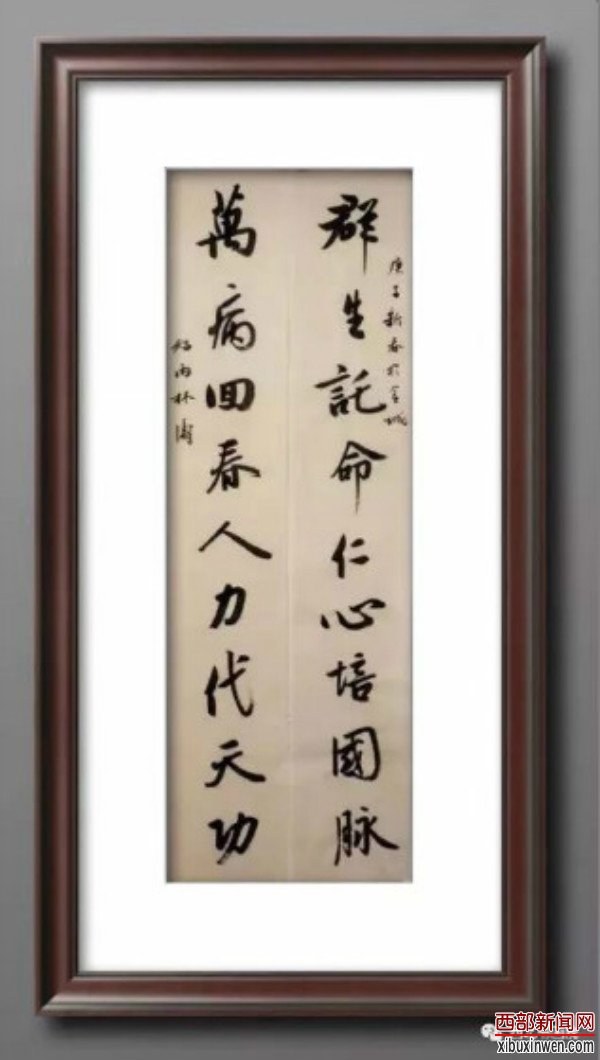 群生託命仁心培國脉
庚子新春於金城
萬病回春人力代天功
雨林
西部新闻网
xibuxinwen.com